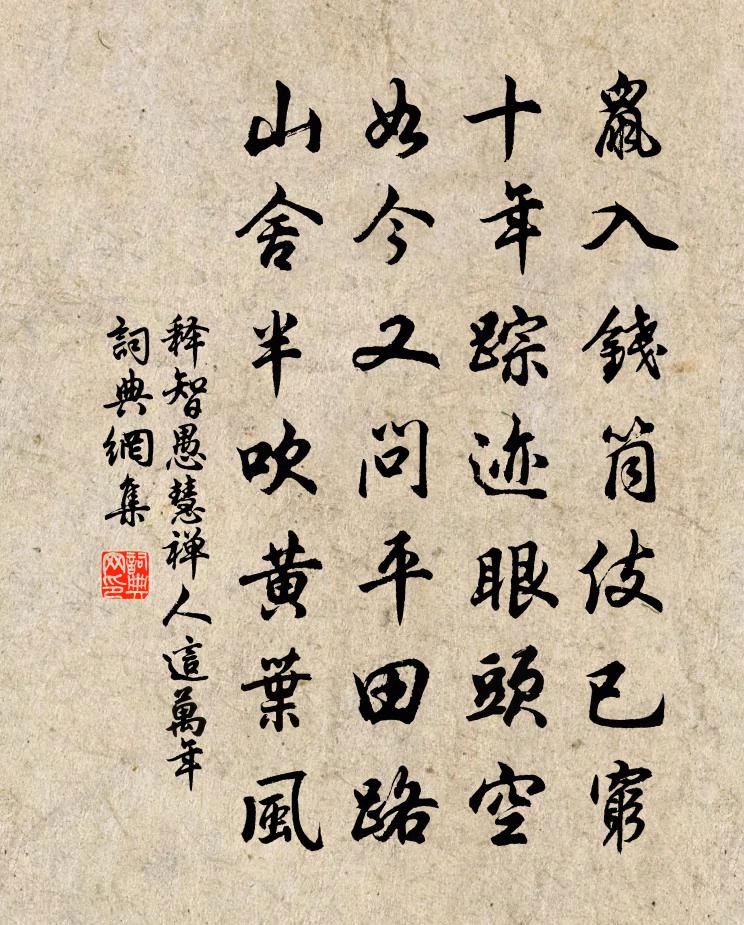 鼠入錢筒伎已窮
十年踪迹眼頭空
如今又問平田路
山舍半吹黄葉風
释智愚慧禅人這萬年
詞典網集
詞典
网印